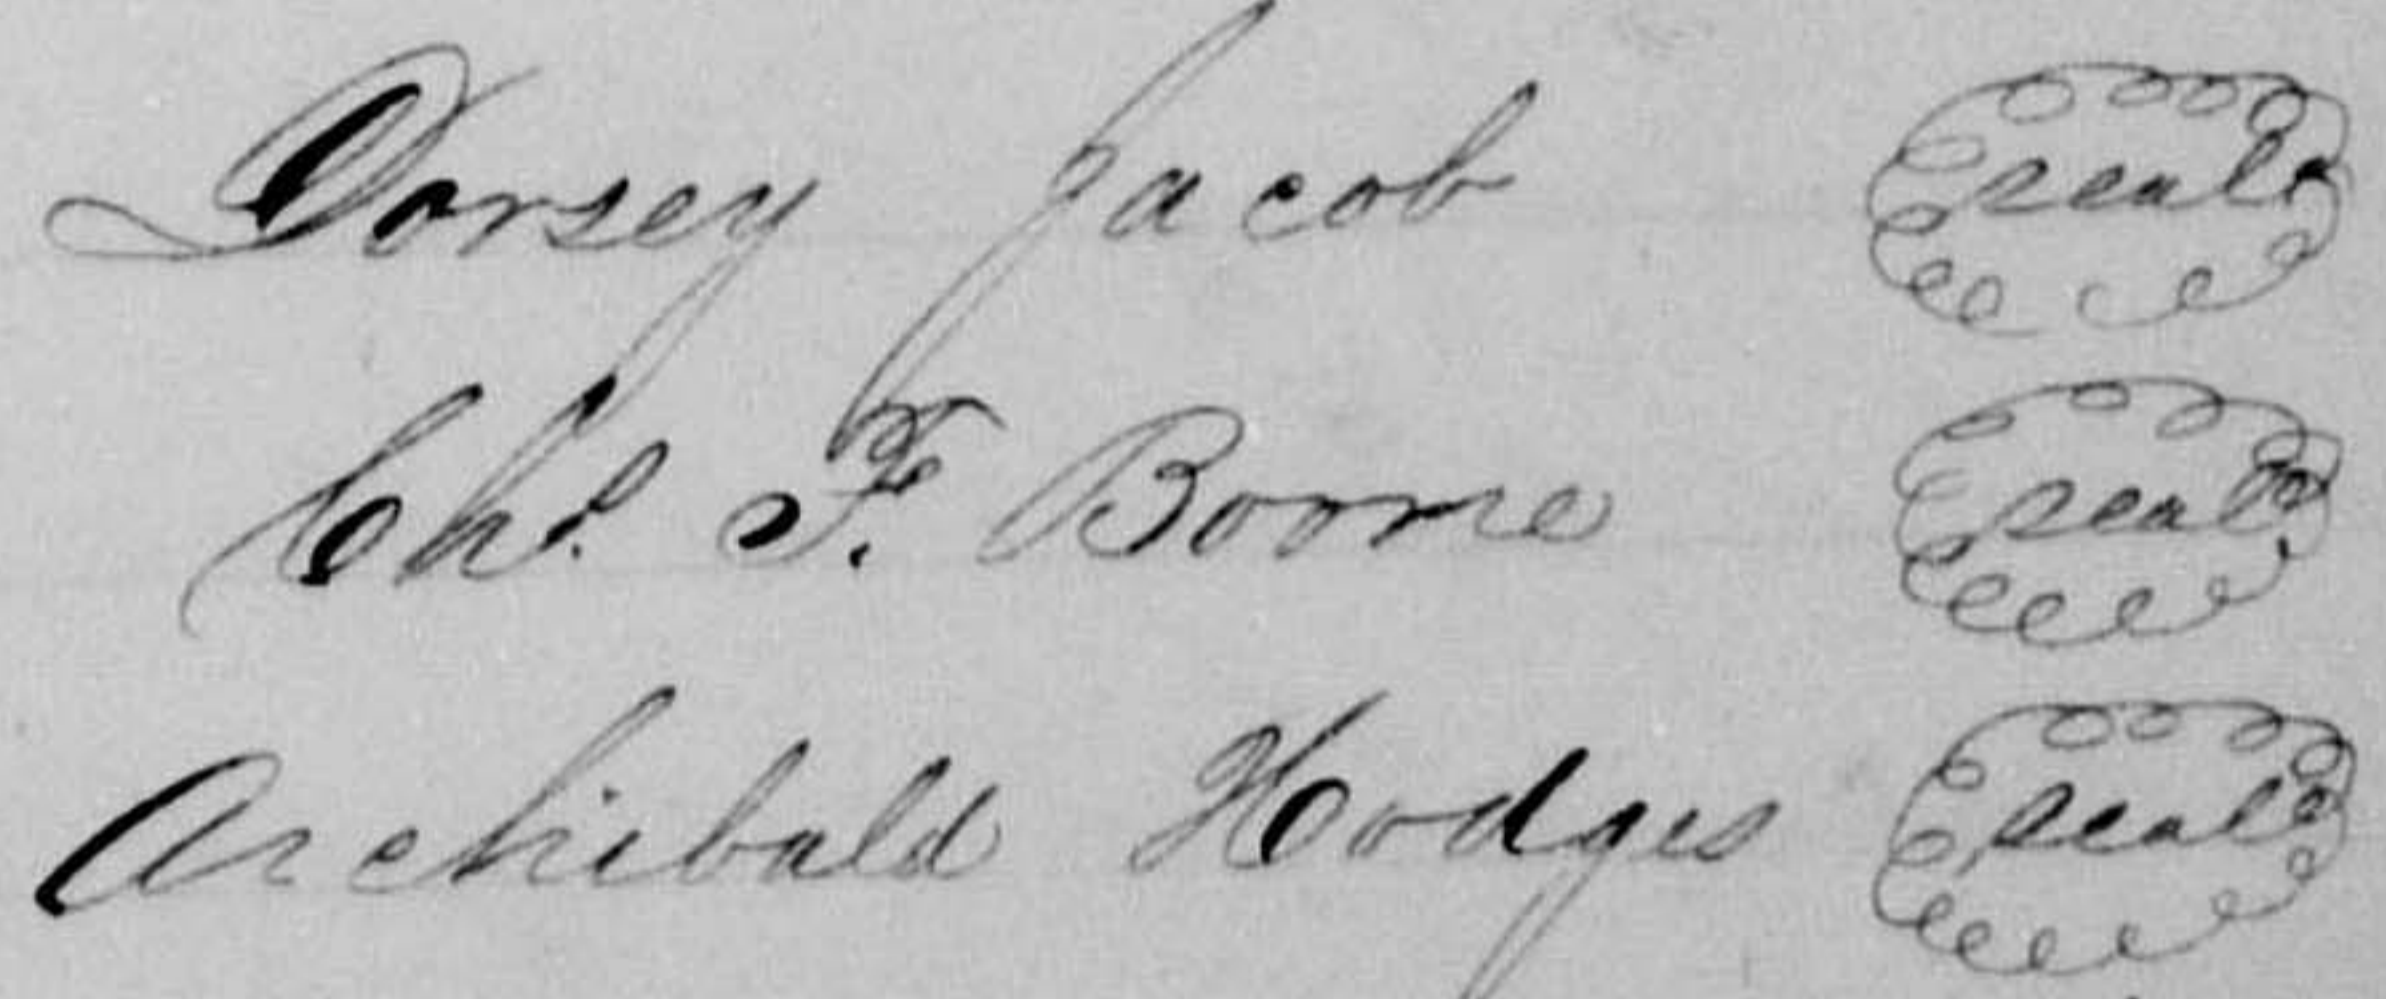 Dorsey Jacob seal
Chs. F. Boone seal
Archibald Hodges seal